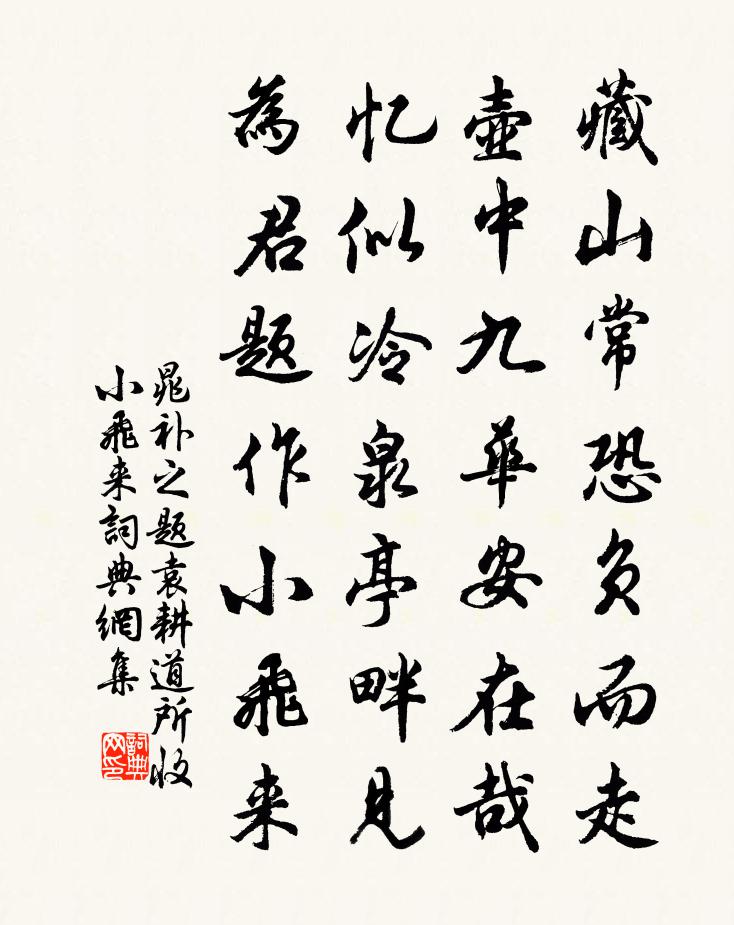 藏山常恐负而走
壺中九華安在哉
忆似冷泉亭畔見
為君题作小飛来
晁补之题袁耕道所收
小飛来詞典網集
詞典网印